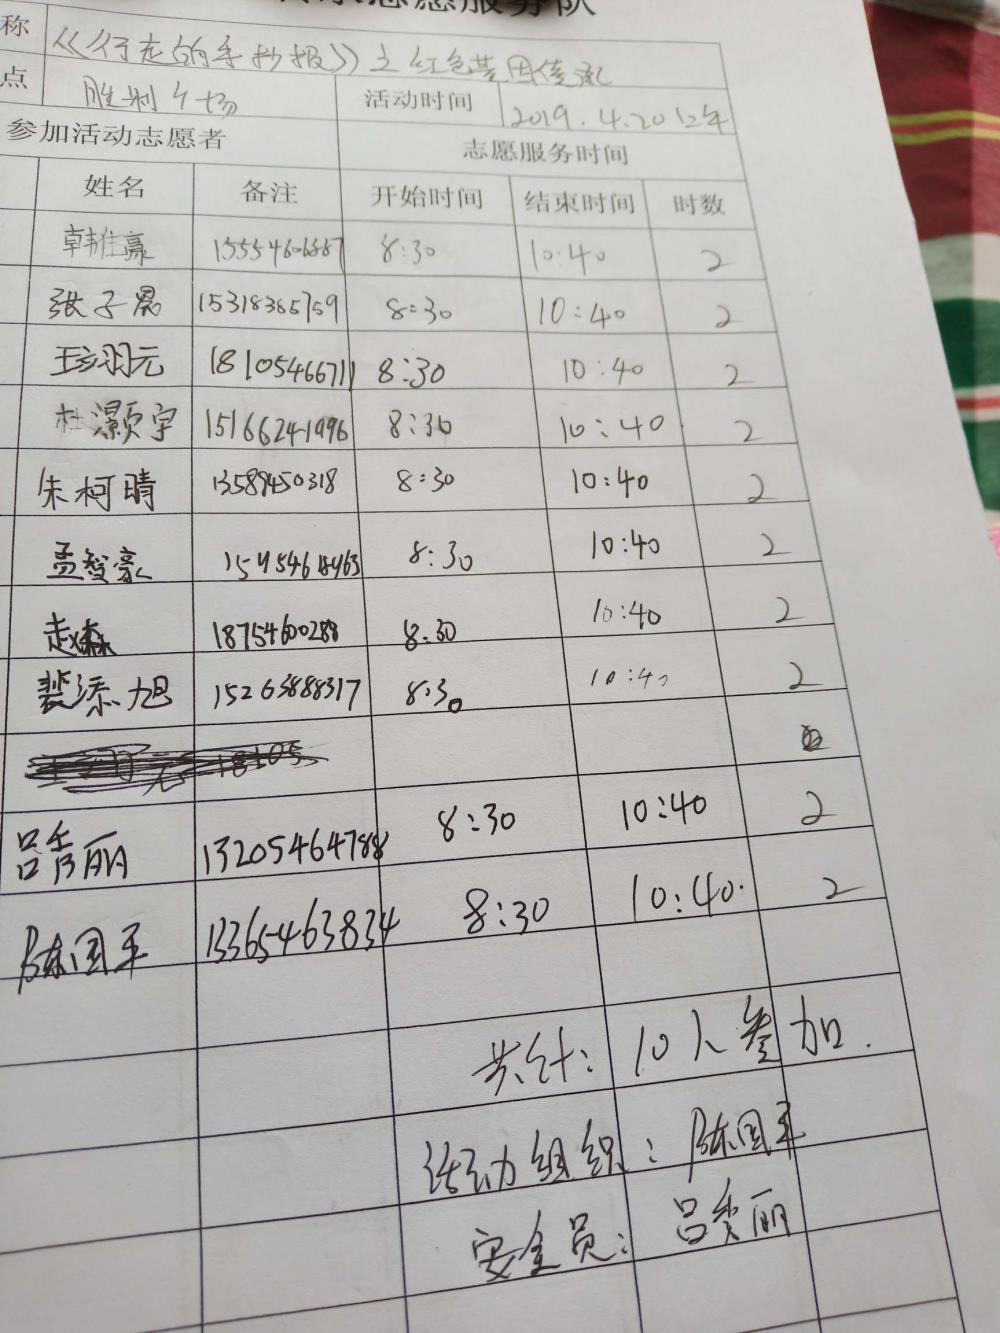 志愿服务队
称 《行走的手抄报》之红色基因传承
点 胜利广场 活动时间 2019.4.20
参加活动志愿者 志愿服务时间
姓名 备注 开始时间 结束时间 时数
韩雅豪 8:30 10:40 2
张子晨 15318385759 8:30 10:40 2
王羽元 18105466711 8:30 10:40 2
杜灏宇 15166241996 8:30 10:40 2
朱柯晴 13589450318 8:30 10:40 2
孟智豪 8:30 10:40 2
赵森 18754600288 8:30 10:40 2
裴添旭 15263888317 8:30 10:40 2
吕秀丽 13205464788 8:30 10:40 2
陈国军 13365463834 8:30 10:40 2
共计:10人参加.
活动组织:陈国军
安全员:吕秀丽